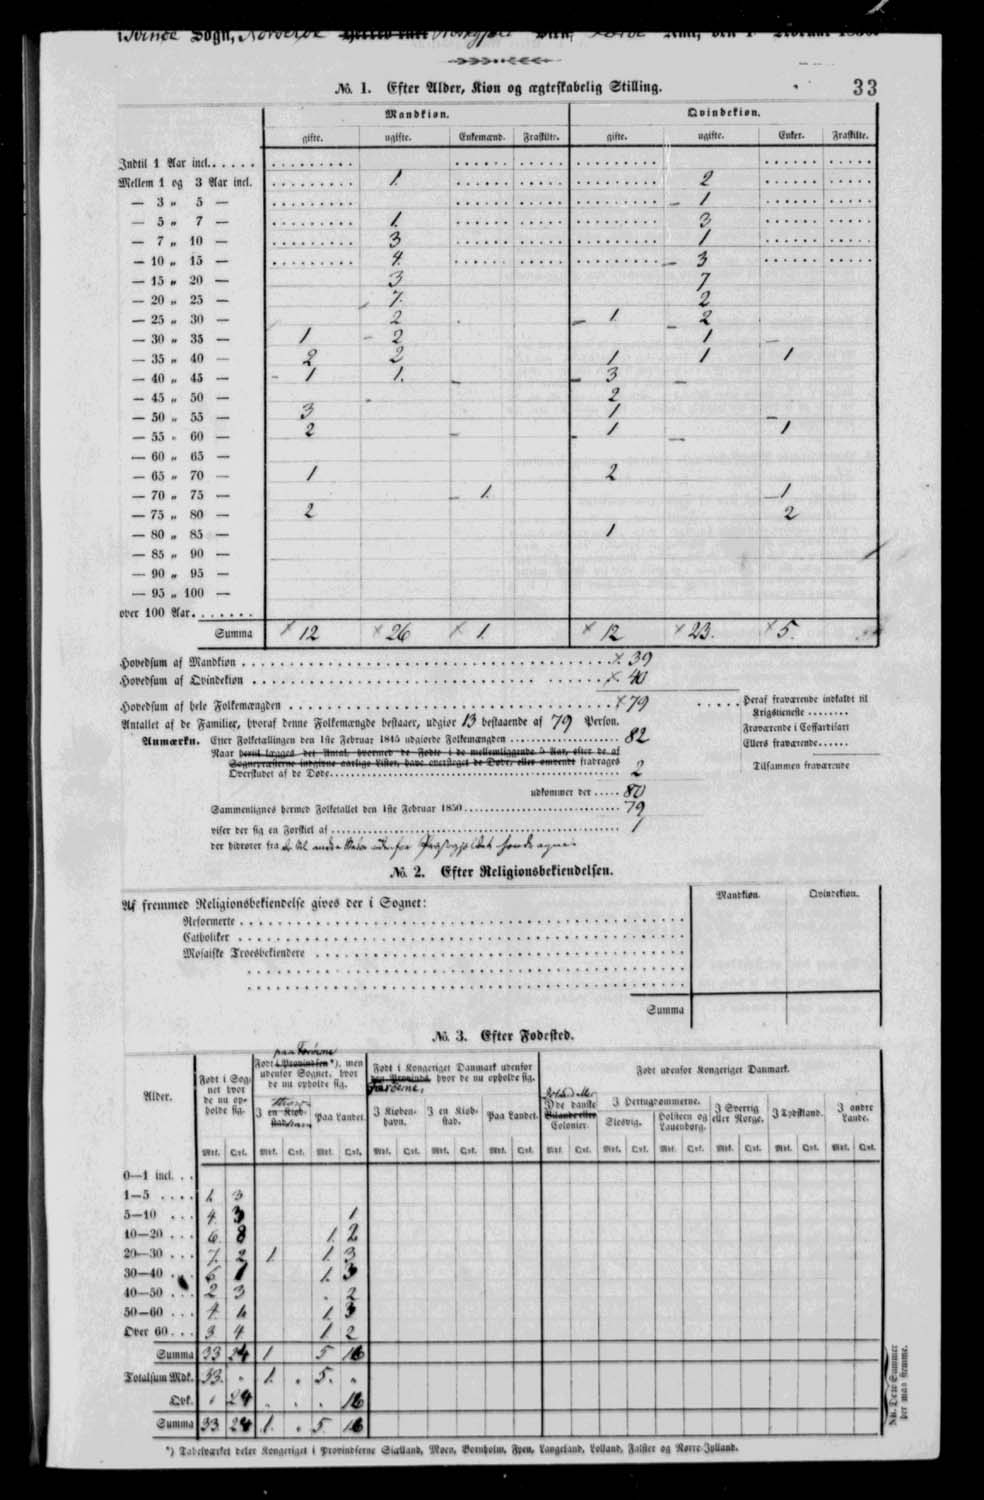 Sogn, Norderøe Provstgjeld
33
No. 1. Efter Alder, Kiøn og ægteskabelig Stilling.
Mandkiøn. Qvindekiøn.
gifte. ugifte. Enkemænd. Fraskilte. gifte. ugifte. Enker. Fraskilte.
Indtil 1 Aar incl.
Mellem 1 og 3 Aar incl. 1. 2
— 3 „ 5 — 1
— 5 „ 7 — 1. 3
— 7 „ 10 — 3 1
— 10 „ 15 — 4. 3
— 15 „ 20 — 3 7
— 20 „ 25 — 7. 2
— 25 „ 30 — 2 1. 2
— 30 „ 35 — 1 2 1
— 35 „ 40 — 2 2 1 1 1
— 40 „ 45 — 1 1. 3
— 45 „ 50 — 2
— 50 „ 55 — 3 1
— 55 „ 60 — 2 1 1
— 60 „ 65 —
— 65 „ 70 — 1 2
— 70 „ 75 — 1. 1
— 75 „ 80 — 2 2
— 80 „ 85 — 1
— 85 „ 90 —
— 90 „ 95 —
— 95 „ 100 —
over 100 Aar
Summa × 12 × 26 × 1. × 12 × 23. × 5.
Hovedsum af Mandkiøn × 39
Hovedsum af Qvindekiøn × 40
Hovedsum af hele Folkemængden × 79
Antallet af de Familier, hvoraf denne Folkemængde bestaaer, udgiør 13 bestaaende af 79 Person.
Heraf fraværende indkaldt til
Krigstieneste
Fraværende i Coffardifart
Ellers fraværende
Tilsammen fraværende
Anmærkn. Efter Folketællingen den 1ste Februar 1845 udgiorde Folkemængden 82
Naar hertil lægges det Antal, hvormed de Fødte i de mellemliggende 5 Aar, efter de af
Sognepræsterne indgivne aarlige Lister, have oversteget de Døde, eller omvendt fradrages
Overskudet af de Døde 2
udkommer der 80
Sammenlignes hermed Folketallet den 1ste Februar 1850 79
viser der sig en Forskiel af 1
der hidrører fra
No. 2. Efter Religionsbekiendelsen.
Mandkiøn. Qvindekiøn.
Af fremmed Religionsbekiendelse gives der i Sognet:
Reformerte
Catholiker
Mosaiske Troesbekiendere
Summa
No. 3. Efter Fødested.
Alder.
Født i Sognet hvor de nu opholde sig.
paa Færøerne
Født i Provindsen*), men udenfor Sognet, hvor de nu opholde sig.
I en Kiøbstad. Paa Landet.
Født i Kongeriget Danmark udenfor den Provinds, hvor de nu opholde sig.
Færøerne,
I Kiøbenhavn. I en Kiøbstad. Paa Landet.
Født udenfor Kongeriget Danmark.
I de danske Bilande eller Colonier.
I Hertugdømmerne.
Slesvig. Holsteen og Lauenborg.
I Sverrig eller Norge. I Tydskland. I andre Lande.
Mk. Qk. Mk. Qk. Mk. Qk. Mk. Qk. Mk. Qk. Mk. Qk. Mk. Qk. Mk. Qk. Mk. Qk. Mk. Qk. Mk. Qk. Mk. Qk.
0—1 incl.
1—5 1. 3
5—10 4. 3 1
10—20 6. 8 1. 2
20—30 7. 2 1. 1. 3
30—40 6 1 1. 3
40—50 2 3 2
50—60 4. 1 3
Over 60 3 4 1 2
Summa 33 24 1 5 16
Totalsum Mdk. 33. „ 1. „ 5. „
Qvk. „ 24 „ „ „ 16
Summa 33 24 1. „ 5. 16
NB. Disse Summer her maa stemme.
*) Tabelværket deler Kongeriget i Provindserne Siælland, Moen, Bornholm, Fyen, Langeland, Lolland, Falster og Nørre-Jylland.